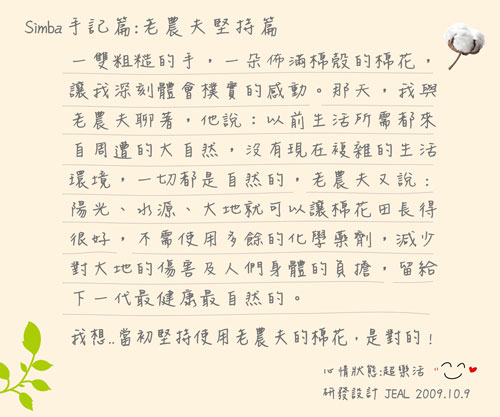 Simba手記篇:老農夫堅持篇
一雙粗糙的手，一朵佈滿棉殼的棉花，
讓我深刻體會樸實的感動。那天，我與
老農夫聊著，他說：以前生活所需都來
自周遭的大自然，沒有現在複雜的生活
環境，一切都是自然的，老農夫又說：
陽光、水源、大地就可以讓棉花田長得
很好，不需使用多餘的化學藥劑，減少
對大地的傷害及人們身體的負擔，留給
下一代最健康最自然的。
我想..當初堅持使用老農夫的棉花，是對的！
心情狀態:超樂活
研發設計 JEAL 2009.10.9